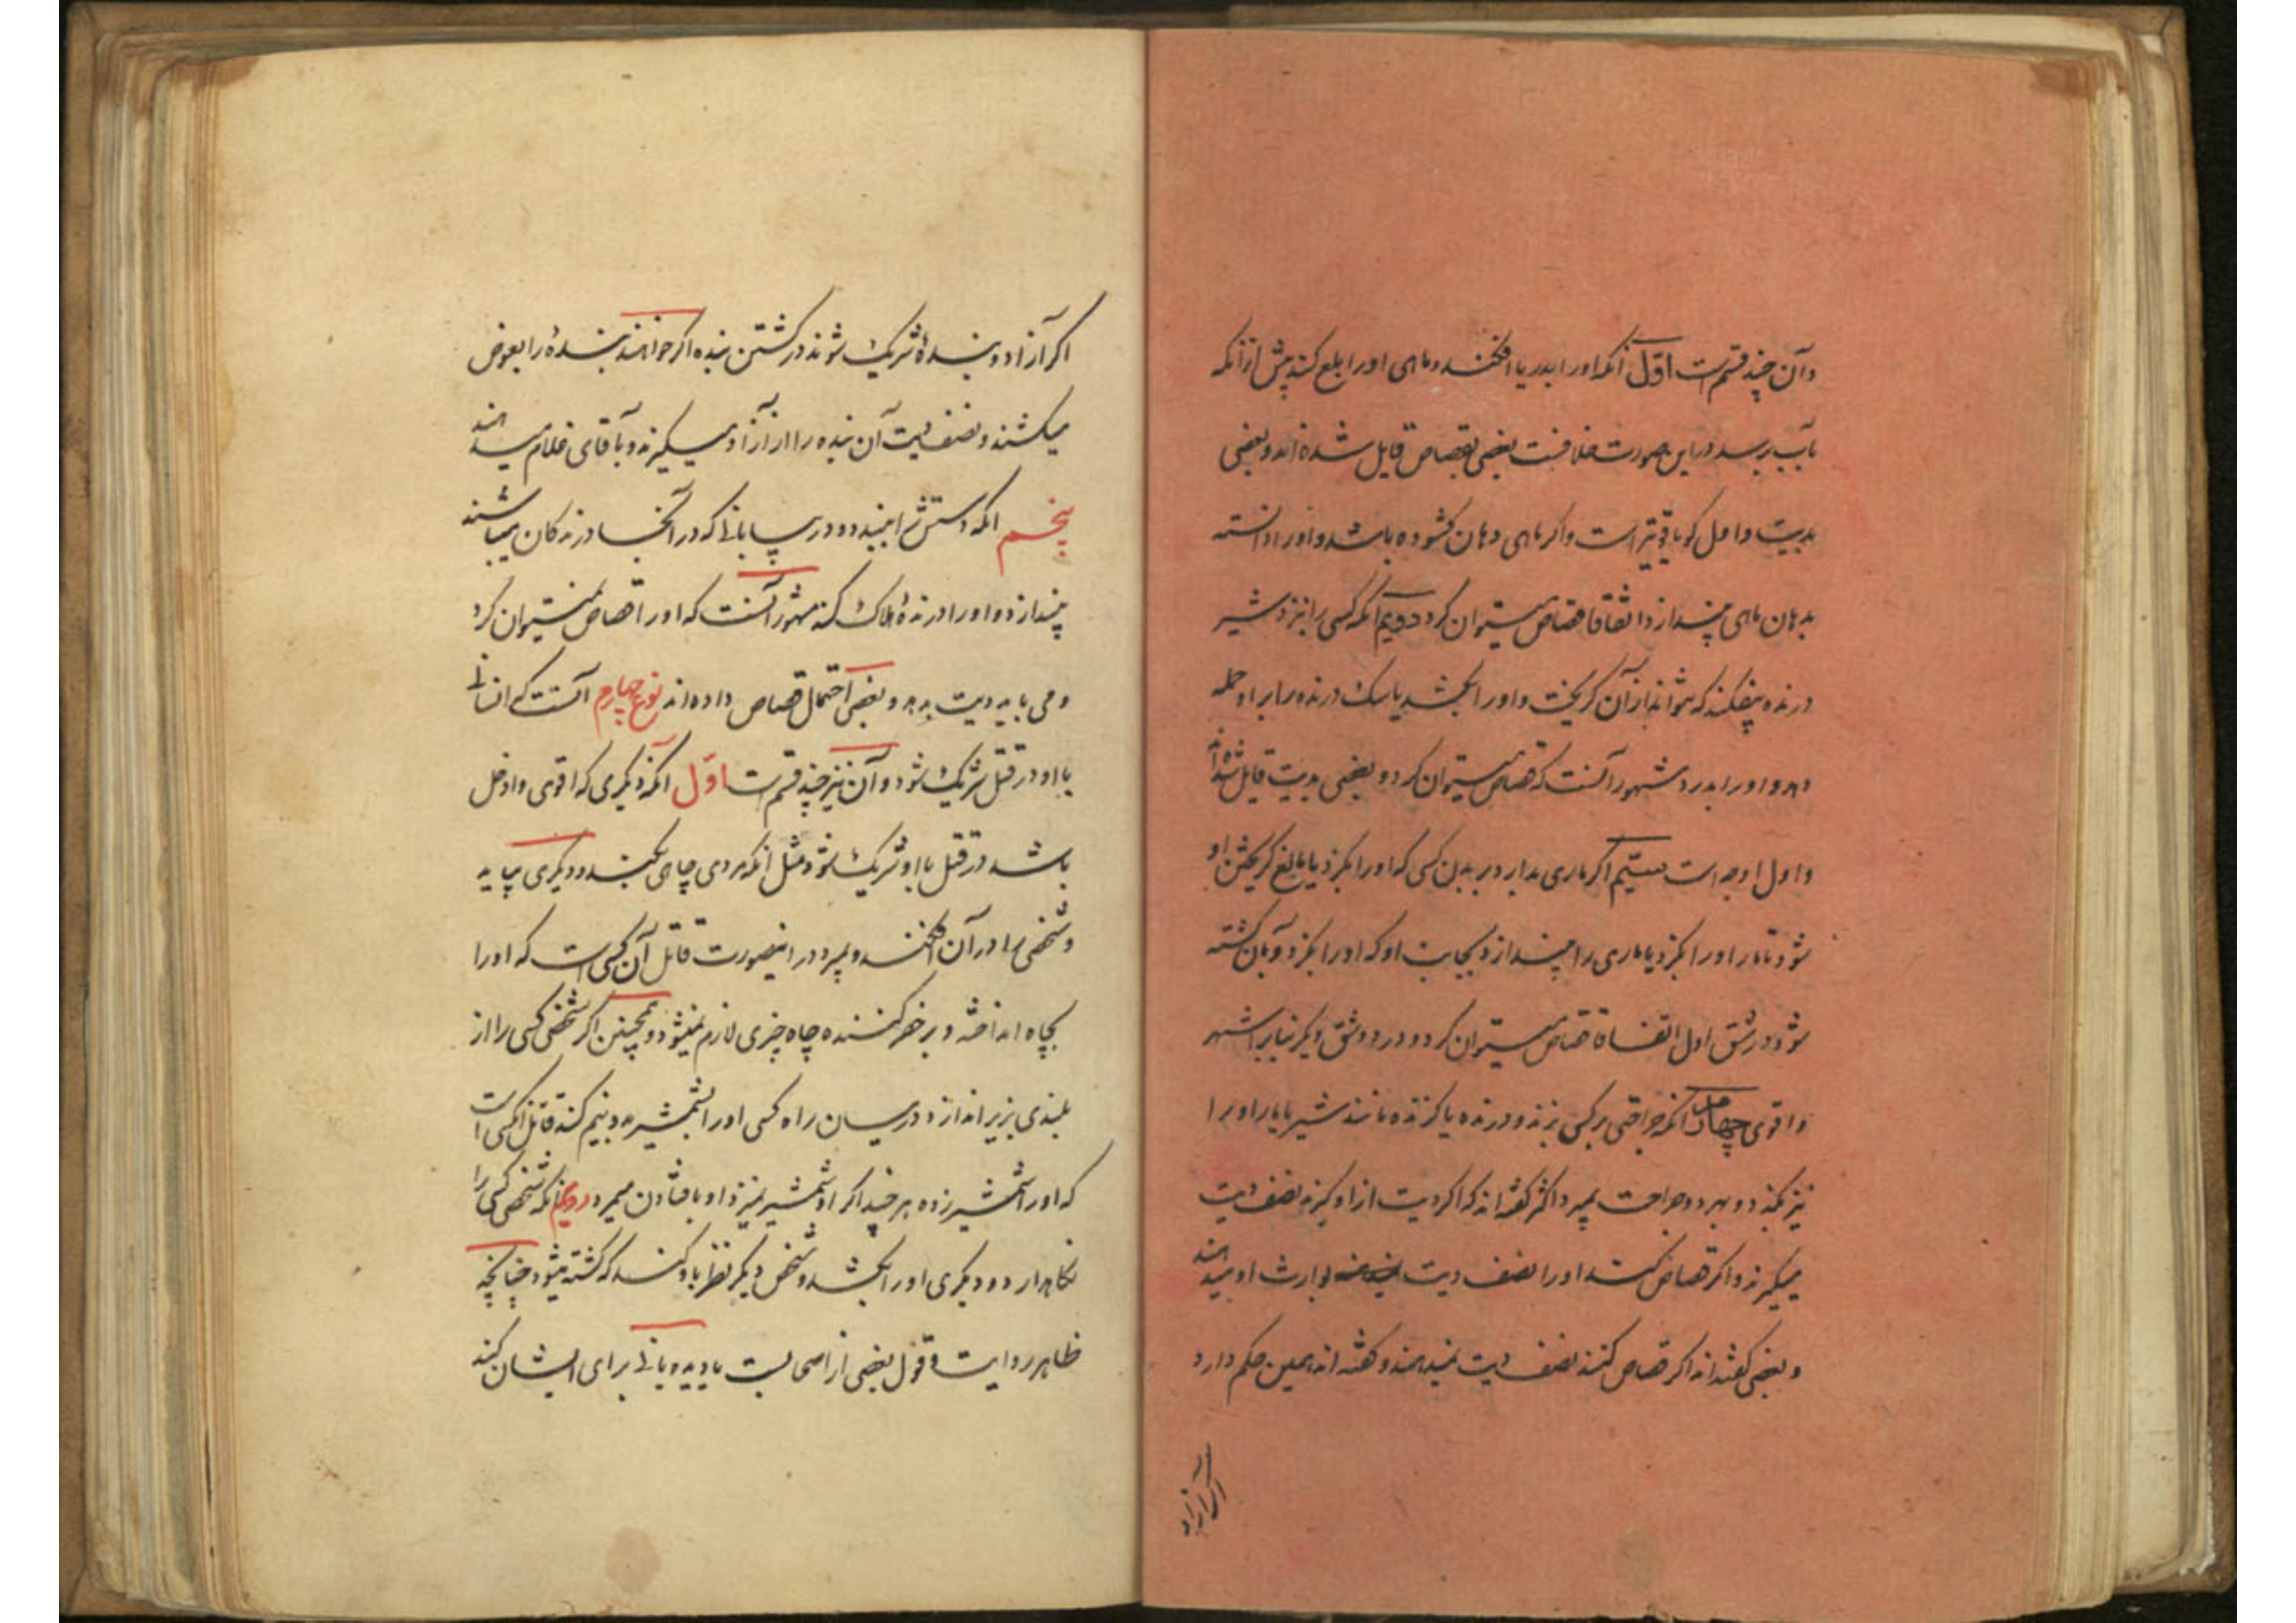 وآن چند قسم است اوّل آنکه اورا بدریا افکند وماهی اورا بلع کند پیش از آنکه
بآب برسد دراین صورت خلافست بعضی بقصاص قایل شده اند وبعضی
بدیت واول کویا قویتر است واکر ماهی دهان کشوده باشد واورا دانسته
بدهان ماهی بیندازد اتفاقا قصاص میتوان کرد دویم آنکه کسی را نزد شیر
درنده بیفکند که نتواند از آن کریخت واورا بکشد یا سک درنده را بر او حمله
دهد واورا بدرد مشهور آنست که قصاص میتوان کرد وبعضی بدیت قایل شده اند
واول اوجه است سیّیم اکر ماری بدارد بر بدن کسی که اورا بکزد یا مانع کریختن او
شود تا مار اورا بکزد یا ماری را بیندازد بجانب او که اورا بکزد وبآن کشته
شود در شق اول اتفاقا قصاص میتوان کرد ودر دو شق دیکر بنابر اشهر
واقوی چهارم آنکه جراحتی بر کسی بزند ودرنده یا کزنده مانند شیر یا مار اورا
نیز بکزد وبهر دو جراحت بمیرد اکثر کفته اند که اکر دیت از او کیرند نصف دیت
میکیرند واکر قصاص کنند اورا نصف دیت بوارث او میدهند
وبعضی کفته اند اکر قصاص کنند نصف دیت نمیدهند وکفته اند همین حکم دارد
اکر آزاد
اکر آزاد وبندهٔ شریک شوند در کشتن بنده اکر خواهند بندهٔ را بعوض
میکشند ونصف دیت آن بنده را از آزاد میکیرند وبآقای غلام میدهند
پنجم آنکه دستش را ببندد ودر بیابانی که در آنجا درندکان میباشند
بیندازد واورا درندهٔ هلاک کند مشهور آنست که اورا قصاص نمیتوان کرد
ومی باید دیت بدهد وبعضی احتمال قصاص داده اند نوع چهارم آنست که انسانی
با او در قتل شریک شود وآن نیز چند قسم است اوّل آنکه دیکری که اقوی وادخل
باشد در قتل با او شریک شود مثل آنکه مردی چاهی بکند ودیکری بیاید
وشخصی را در آن افکند وبمیرد در اینصورت قاتل آن کسی است که اورا
بچاه انداخته وبر حفر کننده چاه چیزی لازم نمیشود وهمچنین اکر شخصی کسی را از
بلندی بزیر اندازد ودر میان راه کسی اورا بشمشیر دو نیم کند قاتل آنکسی است
که اورا شمشیر زده هر چند اکر او شمشیر نمیزد او بافتادن میمرد دویم آنکه شخصی کسی را
نکاهدارد ودیکری اورا بکشد وشخص دیکر نظر باو کند که کشته میشود چنانچه
ظاهر روایت وقول بعضی از اصحابست یا دیده بانی برای ایشان کند